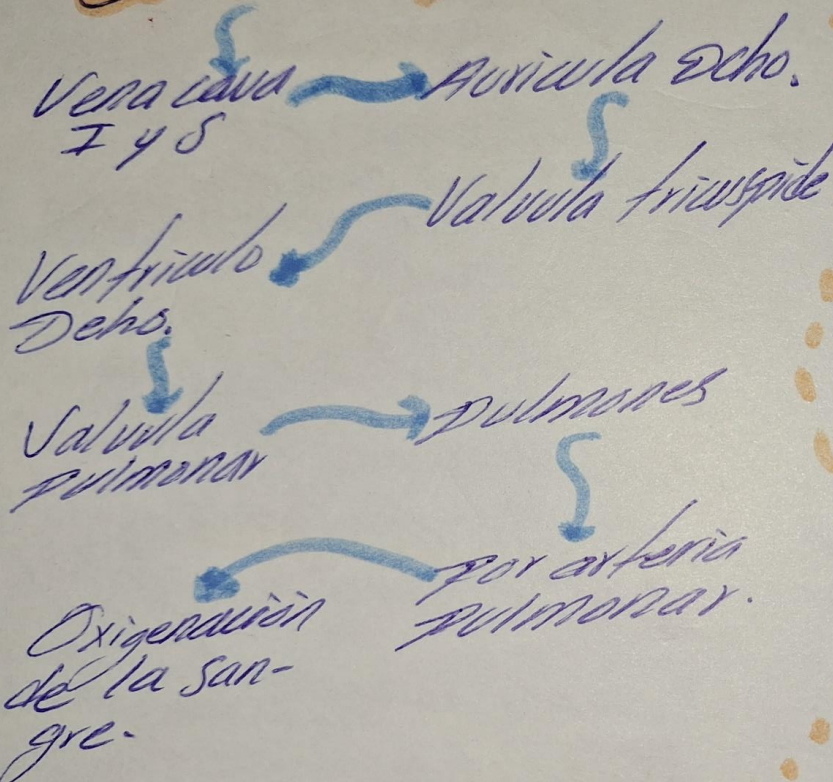 Vena cava
I y S
Auricula Dcho.
Valvula tricuspide
Ventriculo
Dcho.
Valvula
pulmonar
Pulmones
por arteria
pulmonar.
Oxigenación
de la san-
gre.